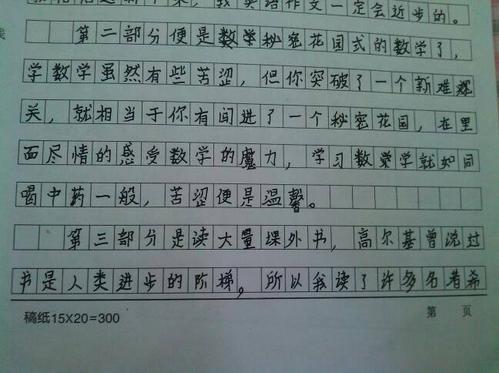 我英语作文一定会近步的。
第二部分便是数学秘密花园式的数学了,
学数学虽然有些苦涩,但你突破了一个新难
关,就相当于你有闯进了一个秘密花园,在里
面尽情的感受数学的魔力,学习数学就如同
喝中药一般,苦涩便是温馨。
第三部分是读大量课外书,高尔基曾说过
书是人类进步的阶梯,所以我读了许多名著希
稿纸15X20=300
第 页